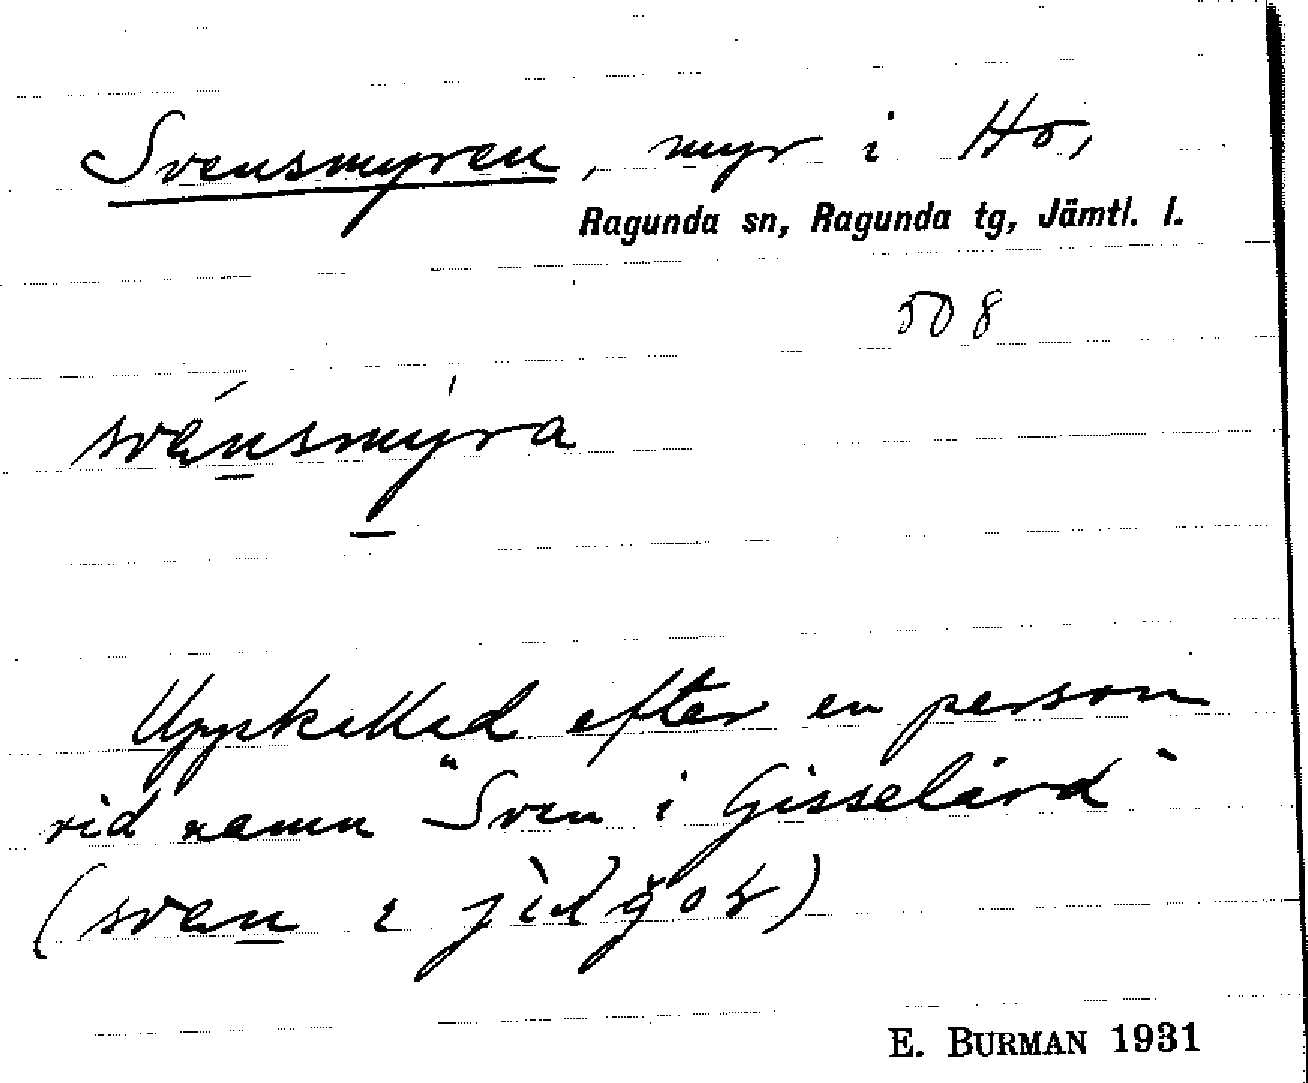 Svensmyren, myr i Hö,
Ragunda sn, Ragunda tg, Jämtl. l.
508
svénsmýra
Uppkallad efter en person
vid namn "Sven i Gisselård"
(sven ɩ
E. BURMAN 1931